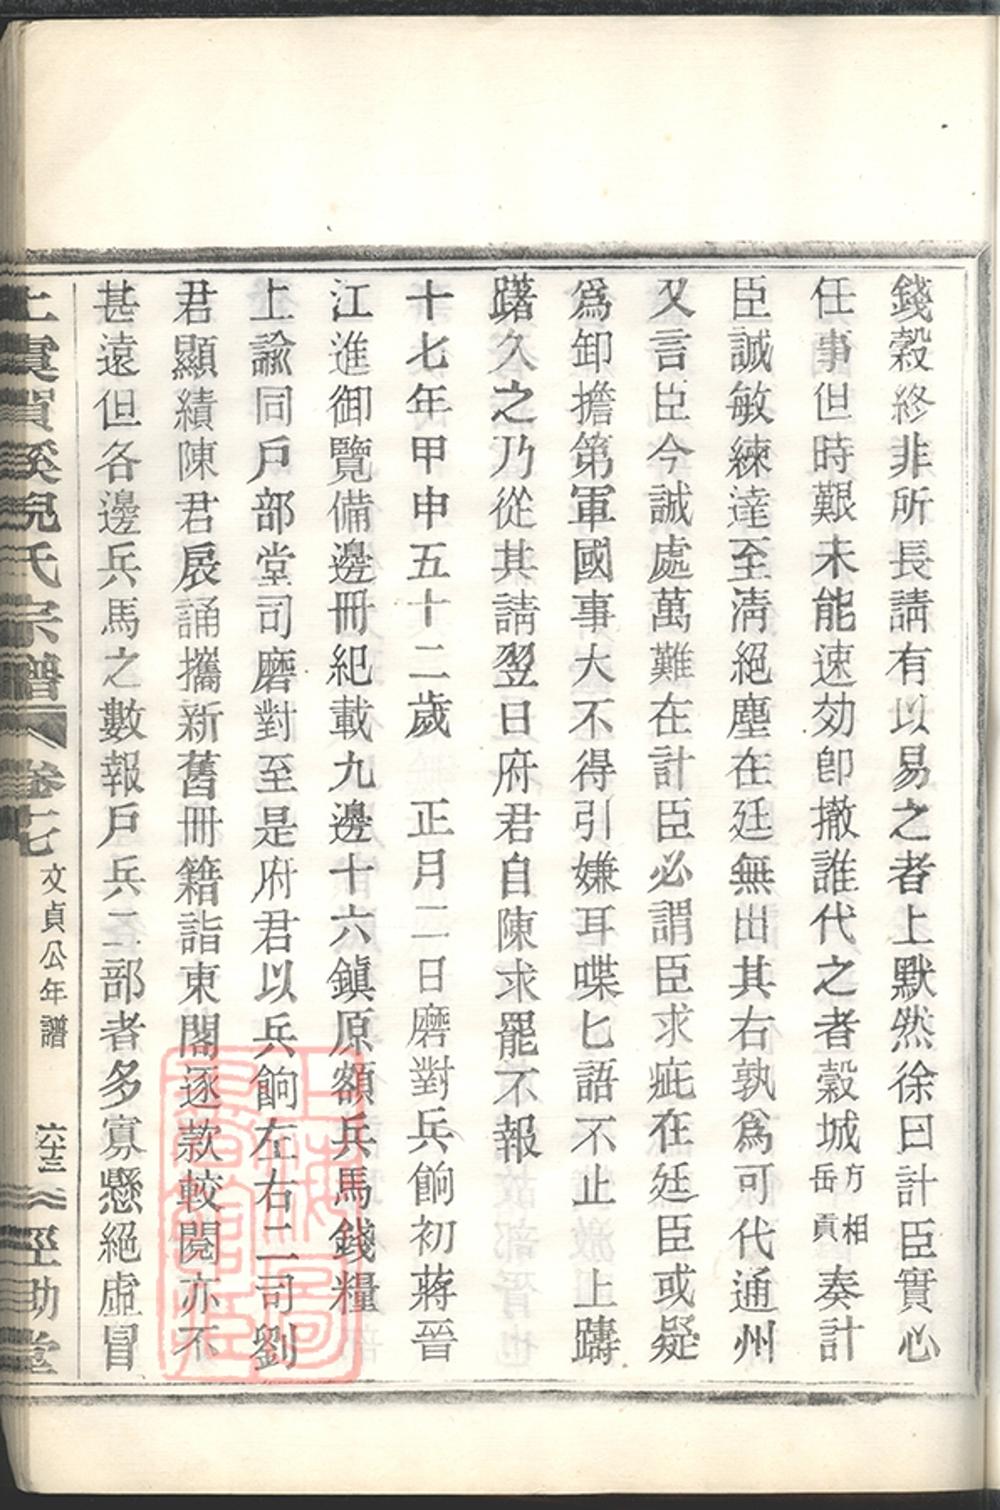 錢穀終非所長請有以易之者上默然徐曰計臣實心
任事但時艱未能速効卽撤誰代之者穀城方相岳貢奏計
臣誠敏練達至淸絕塵在廷無出其右孰爲可代通州
又言臣今誠處萬難在計臣必謂臣求疵在廷臣或疑
爲卸擔第軍國事大不得引嫌耳喋匕語不止 上躊
躇久之乃從其請翌日府君自陳求罷不報
十七年甲申五十二歲 正月二日磨對兵餉初蔣晉
江進御覽備邊冊紀載九邊十六鎭原額兵馬錢糧
上諭同戶部堂司磨對至是府君以兵餉左右二司劉
君顯績陳君扆誦攜新舊冊籍詣東閣逐款較閱亦不
甚遠但各邊兵馬之數報戶兵二部者多寡懸絕虛冒
上虞賀溪倪氏宗譜 卷七 文貞公年譜 六十三 經助堂
上海圖書館藏